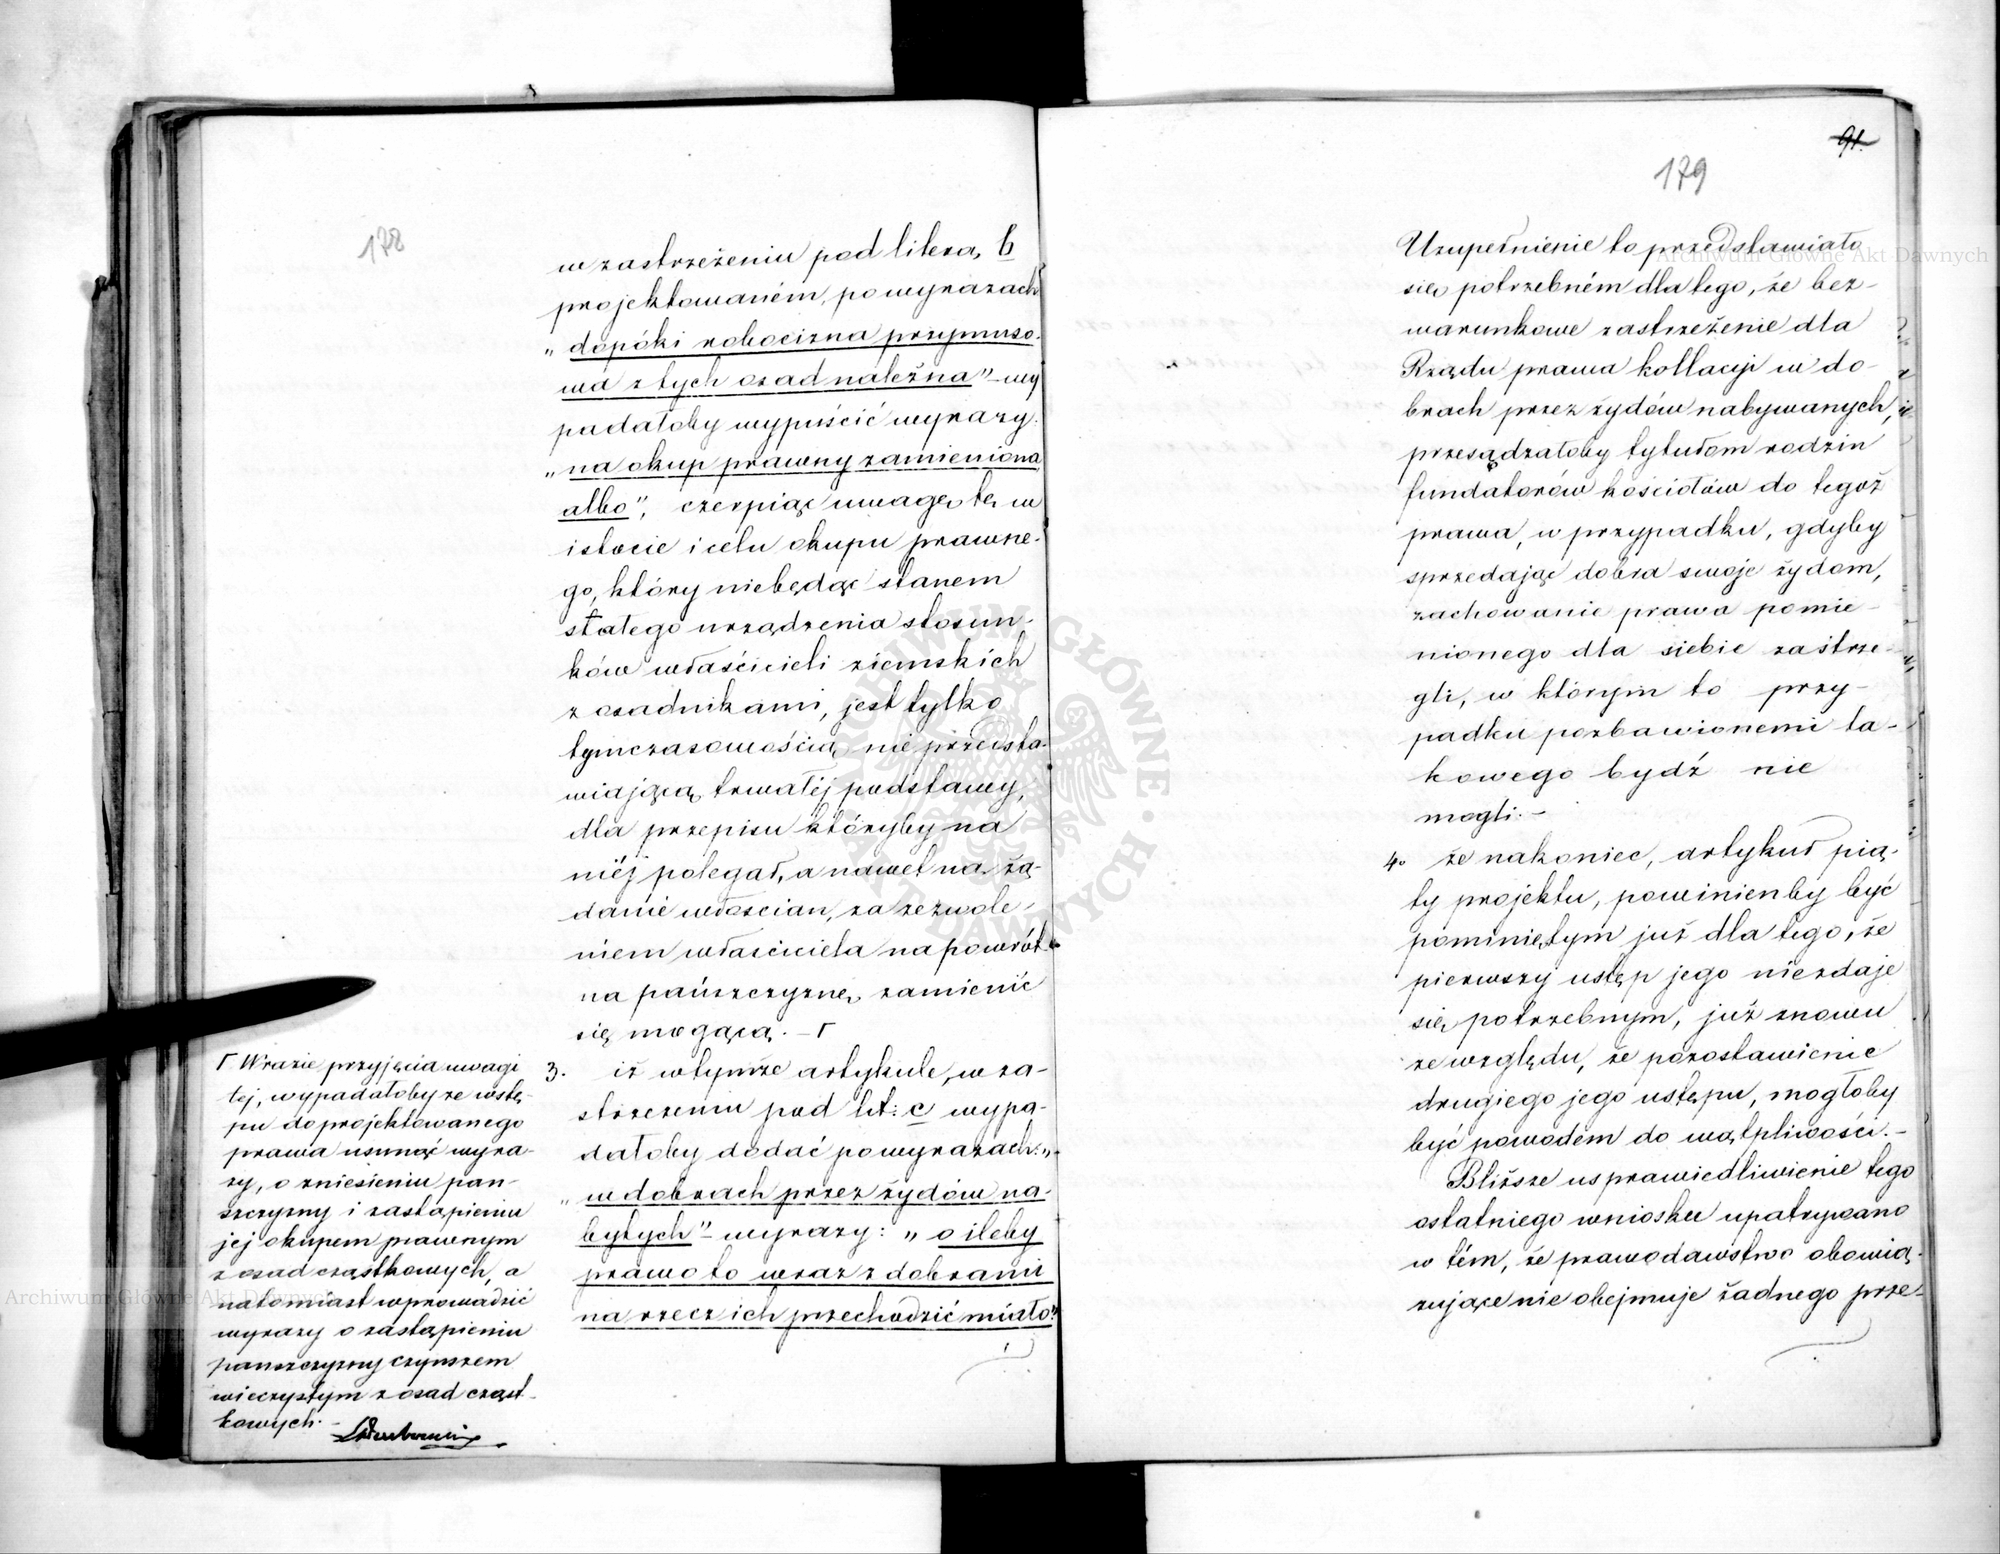 178
w zastrzeżeniu pod literą b
projektowaném, po wyrazach
„dopóki robocizna przymuso-
wa z tych osad należna" – wy
padałoby wypuścić wyrazy:
„na okup prawny zamieniona
albo", czerpiąc uwagę tę w
istocie i celu okupu prawne-
go, który niebędąc stanem
stałego urządzenia stosun-
ków właścicieli ziemskich
z osadnikami, jest tylko
tymczasowością nie przedsta-
wiającą trwałéj podstawy,
dla przepisu któryby na
niéj polegał, a nawet na żą-
danie włościan, za zezwole-
niem właściciela napowrót
na pańszczyznę zamienić
się mogącą. – Γ
3. iż w tymże artykule, w za-
strzeżeniu pod lit: c wypa-
dałoby dodać po wyrazach: „
„w dobrach przez żydów na-
bytych" – wyrazy: „o ileby
prawo to wraz z dobrami
na rzecz ich przechodzić miało"
Γ W razie przyjęcia uwagi
tej, wypadałoby ze wstę-
pu do projektowanego
prawa usunąć wyra-
zy, o zniesieniu pań-
szczyzny i zastąpieniu
jej okupem prawnym
z osad cząstkowych, a
natomiast wprowadzić
wyrazy o zastąpieniu
pańszczyzny czynszem
wieczystym z osad cząst-
kowych. –
91.
179
Uzupełnienie to przedstawiało
się potrzebném dla tego, że bez-
warunkowe zastrzeżenie dla
Rządu prawa kollacyi w do-
brach przez żydów nabywanych,
przesądzałoby tytułom rodzin
fundatorów kościołów do tegoż
prawa, w przypadku, gdyby
sprzedając dobra swoje żydom,
zachowanie prawa pomie-
nionego dla siebie zastrze-
gli, w którym to przy-
padku pozbawionemi ta-
kowego bydź nie
mogli. –
4o że nakoniec, artykuł pią-
ty projektu, powinienby być
pominiętym już dla tego, że
pierwszy ustęp jego niezdaje
się potrzebnym, już znowu
ze względu, że pozostawienie
drugiego jego ustępu, mogłoby
być powodem do wątpliwości. –
Bliższe usprawiedliwienie tego
ostatniego wniosku upatrywano
w tém, że prawodawstwo obowią-
zujące nie obejmuje żadnego prze-
ARCHIWUM GŁÓWNE AKT DAWNYCH
Archiwum Główne Akt Dawnych
Archiwum Główne Akt Dawnych